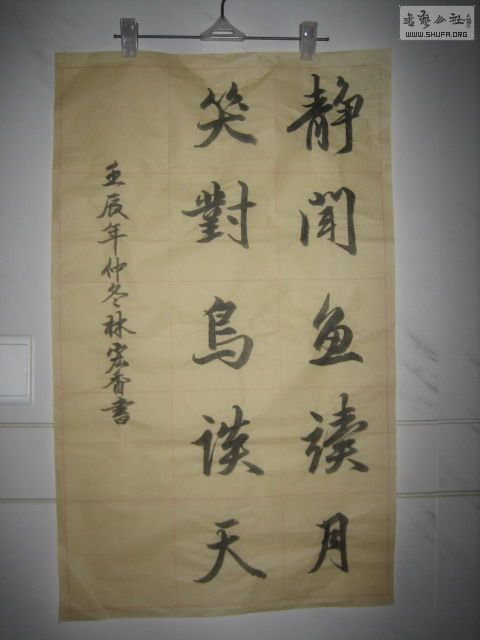 静聞魚讀月
笑對鳥談天
壬辰年仲冬林宏香書
書藝公社
WWW.SHUFA.ORG